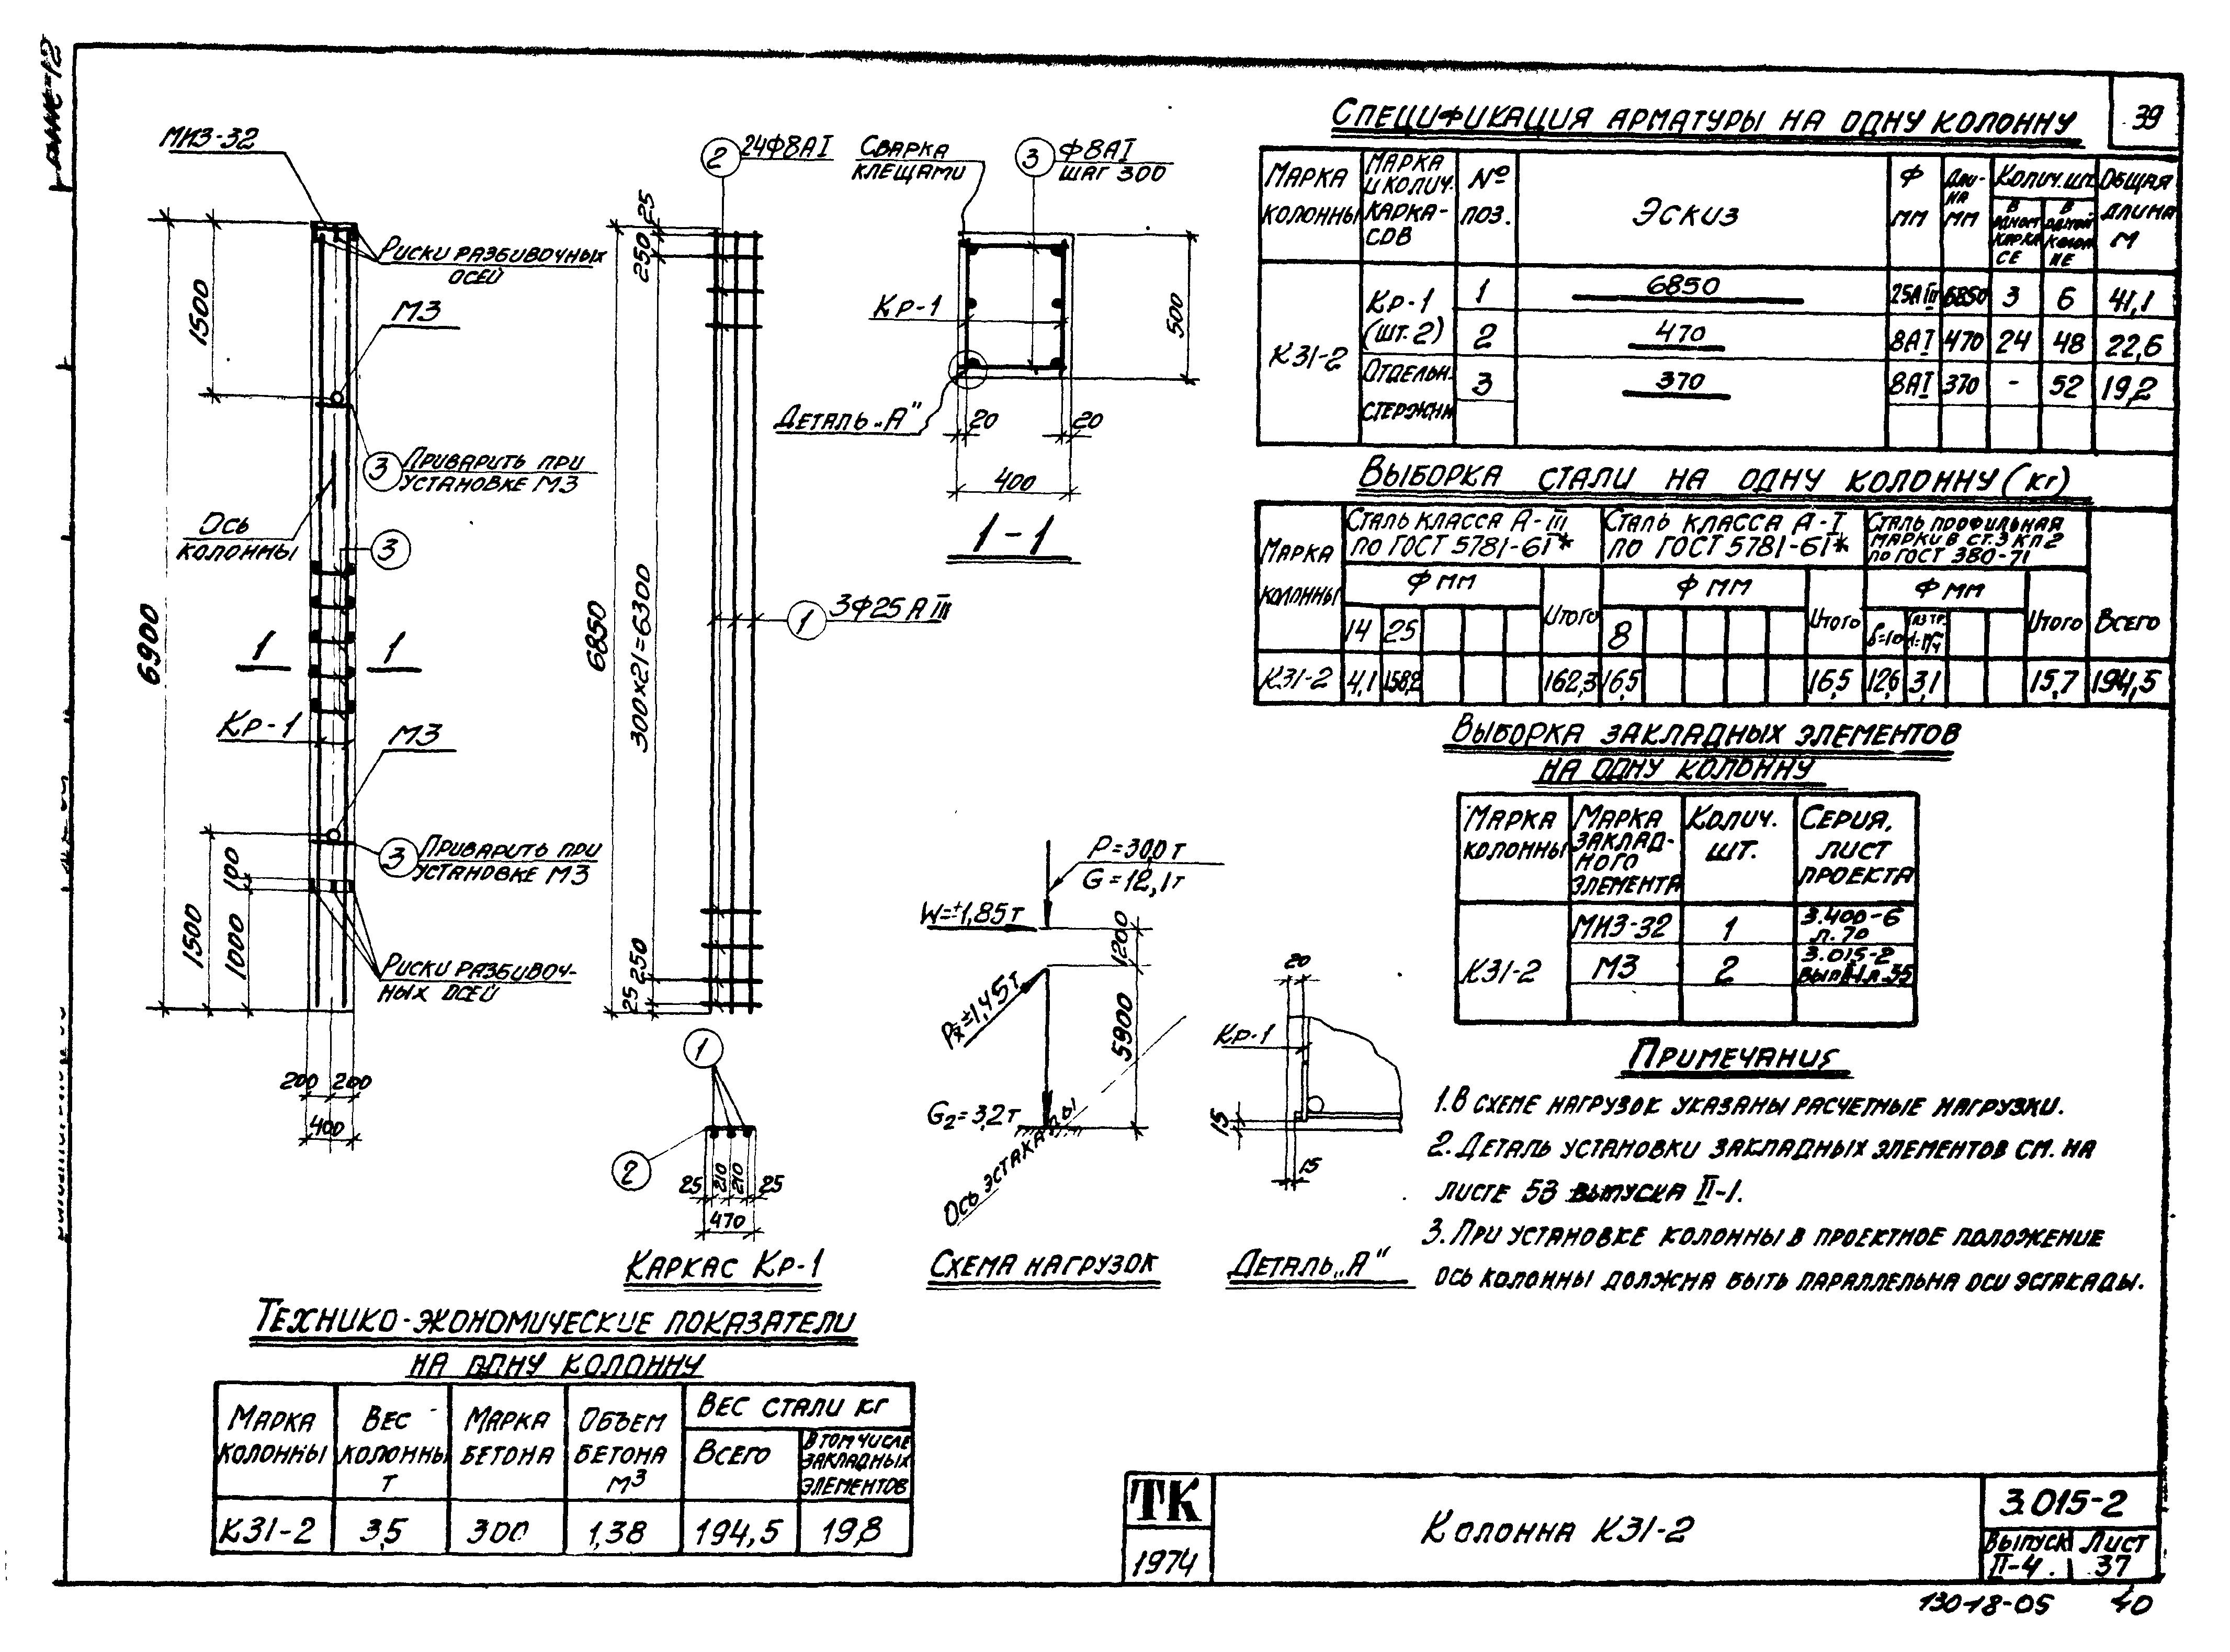 39
МИЗ-32
Риски разбивочных
осей
1500
М3
3 Приварить при
установке М3
Ось
колонны
3
6900
1 1
Кр-1
М3
3 Приварить при
установке М3
100
1500
1000
Риски разбивоч-
ных осей
200 200
400
2 24Ф8АI
25
250
6850
300х21=6300
1 3Ф25АIII
250
25
1
2
25 210 210 25
470
Каркас Кр-1
Сварка
клещами
3 Ф8АI
шаг 300
Кр-1
500
Деталь „А"
20 20
400
1-1
P=30,0т
G=12,1т
W=±1,85т
1200
5900
G2=3,2т
Ось эстакады
Схема нагрузок
20
Кр-1
15
15
Деталь „А"
Спецификация арматуры на одну колонну
Марка колонны
Марка и колич. каркасов
№ поз.
Эскиз
Ф мм
Длина мм
Колич. шт.
в одном каркасе
в одной колонне
Общая длина м
К31-2 Кр-1 (шт.2) 1 6850 25АIII 6850 3 6 41,1
2 470 8АI 470 24 48 22,6
Отдельн. стержни 3 370 8АI 370 - 52 19,2
Выборка стали на одну колонну (кг)
Марка колонны
Сталь класса А-III
по ГОСТ 5781-61*
Сталь класса А-I
по ГОСТ 5781-61*
Сталь профильная
марки В Ст.3 кп2
по ГОСТ 380-71
Ф мм Итого Ф мм Итого Ф мм Итого Всего
14 25 8 δ=10
К31-2 4,1 158,2 162,3 16,5 16,5 12,6 3,1 15,7 194,5
Выборка закладных элементов
на одну колонну
Марка колонны
Марка закладного элемента
Колич. шт.
Серия, лист проекта
К31-2 МИЗ-32 1 3.400-6 л.70
М3 2 3.015-2 вып.II-1 л.35
Примечания
1. В схеме нагрузок указаны расчетные нагрузки.
2. Деталь установки закладных элементов см. на
листе 53 выпуска II-1.
3. При установке колонны в проектное положение
ось колонны должна быть параллельна оси эстакады.
Технико-экономические показатели
на одну колонну
Марка колонны
Вес колонны т
Марка бетона
Объем бетона м3
Вес стали кг
Всего
В том числе закладных элементов
К31-2 3,5 300 1,38 194,5 19,8
ТК
1974
Колонна К31-2
3.015-2
Выпуск Лист
II-4. 37
130-18-05 40